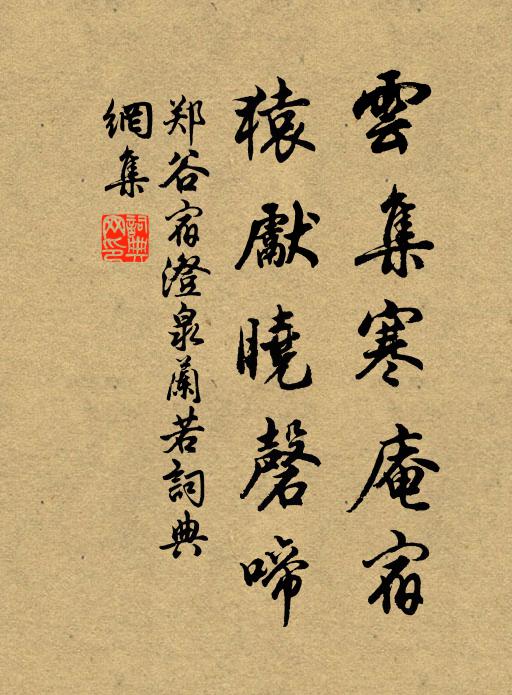 雲集寒庵宿
猿獻曉磬啼
郑谷宿澄泉蘭若詞典
網集
詞典网印